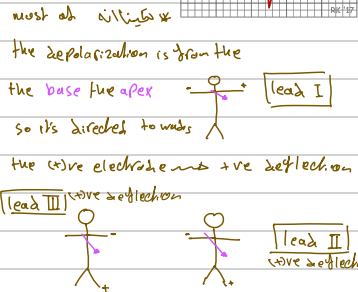 RK '17
most of
the depolarization is from the
the base the apex
- + lead I
so it's directed towards
the (+)ve electrode → +ve deflection
lead III (+)ve deflection
- - lead II
(+)ve deflec
+ +